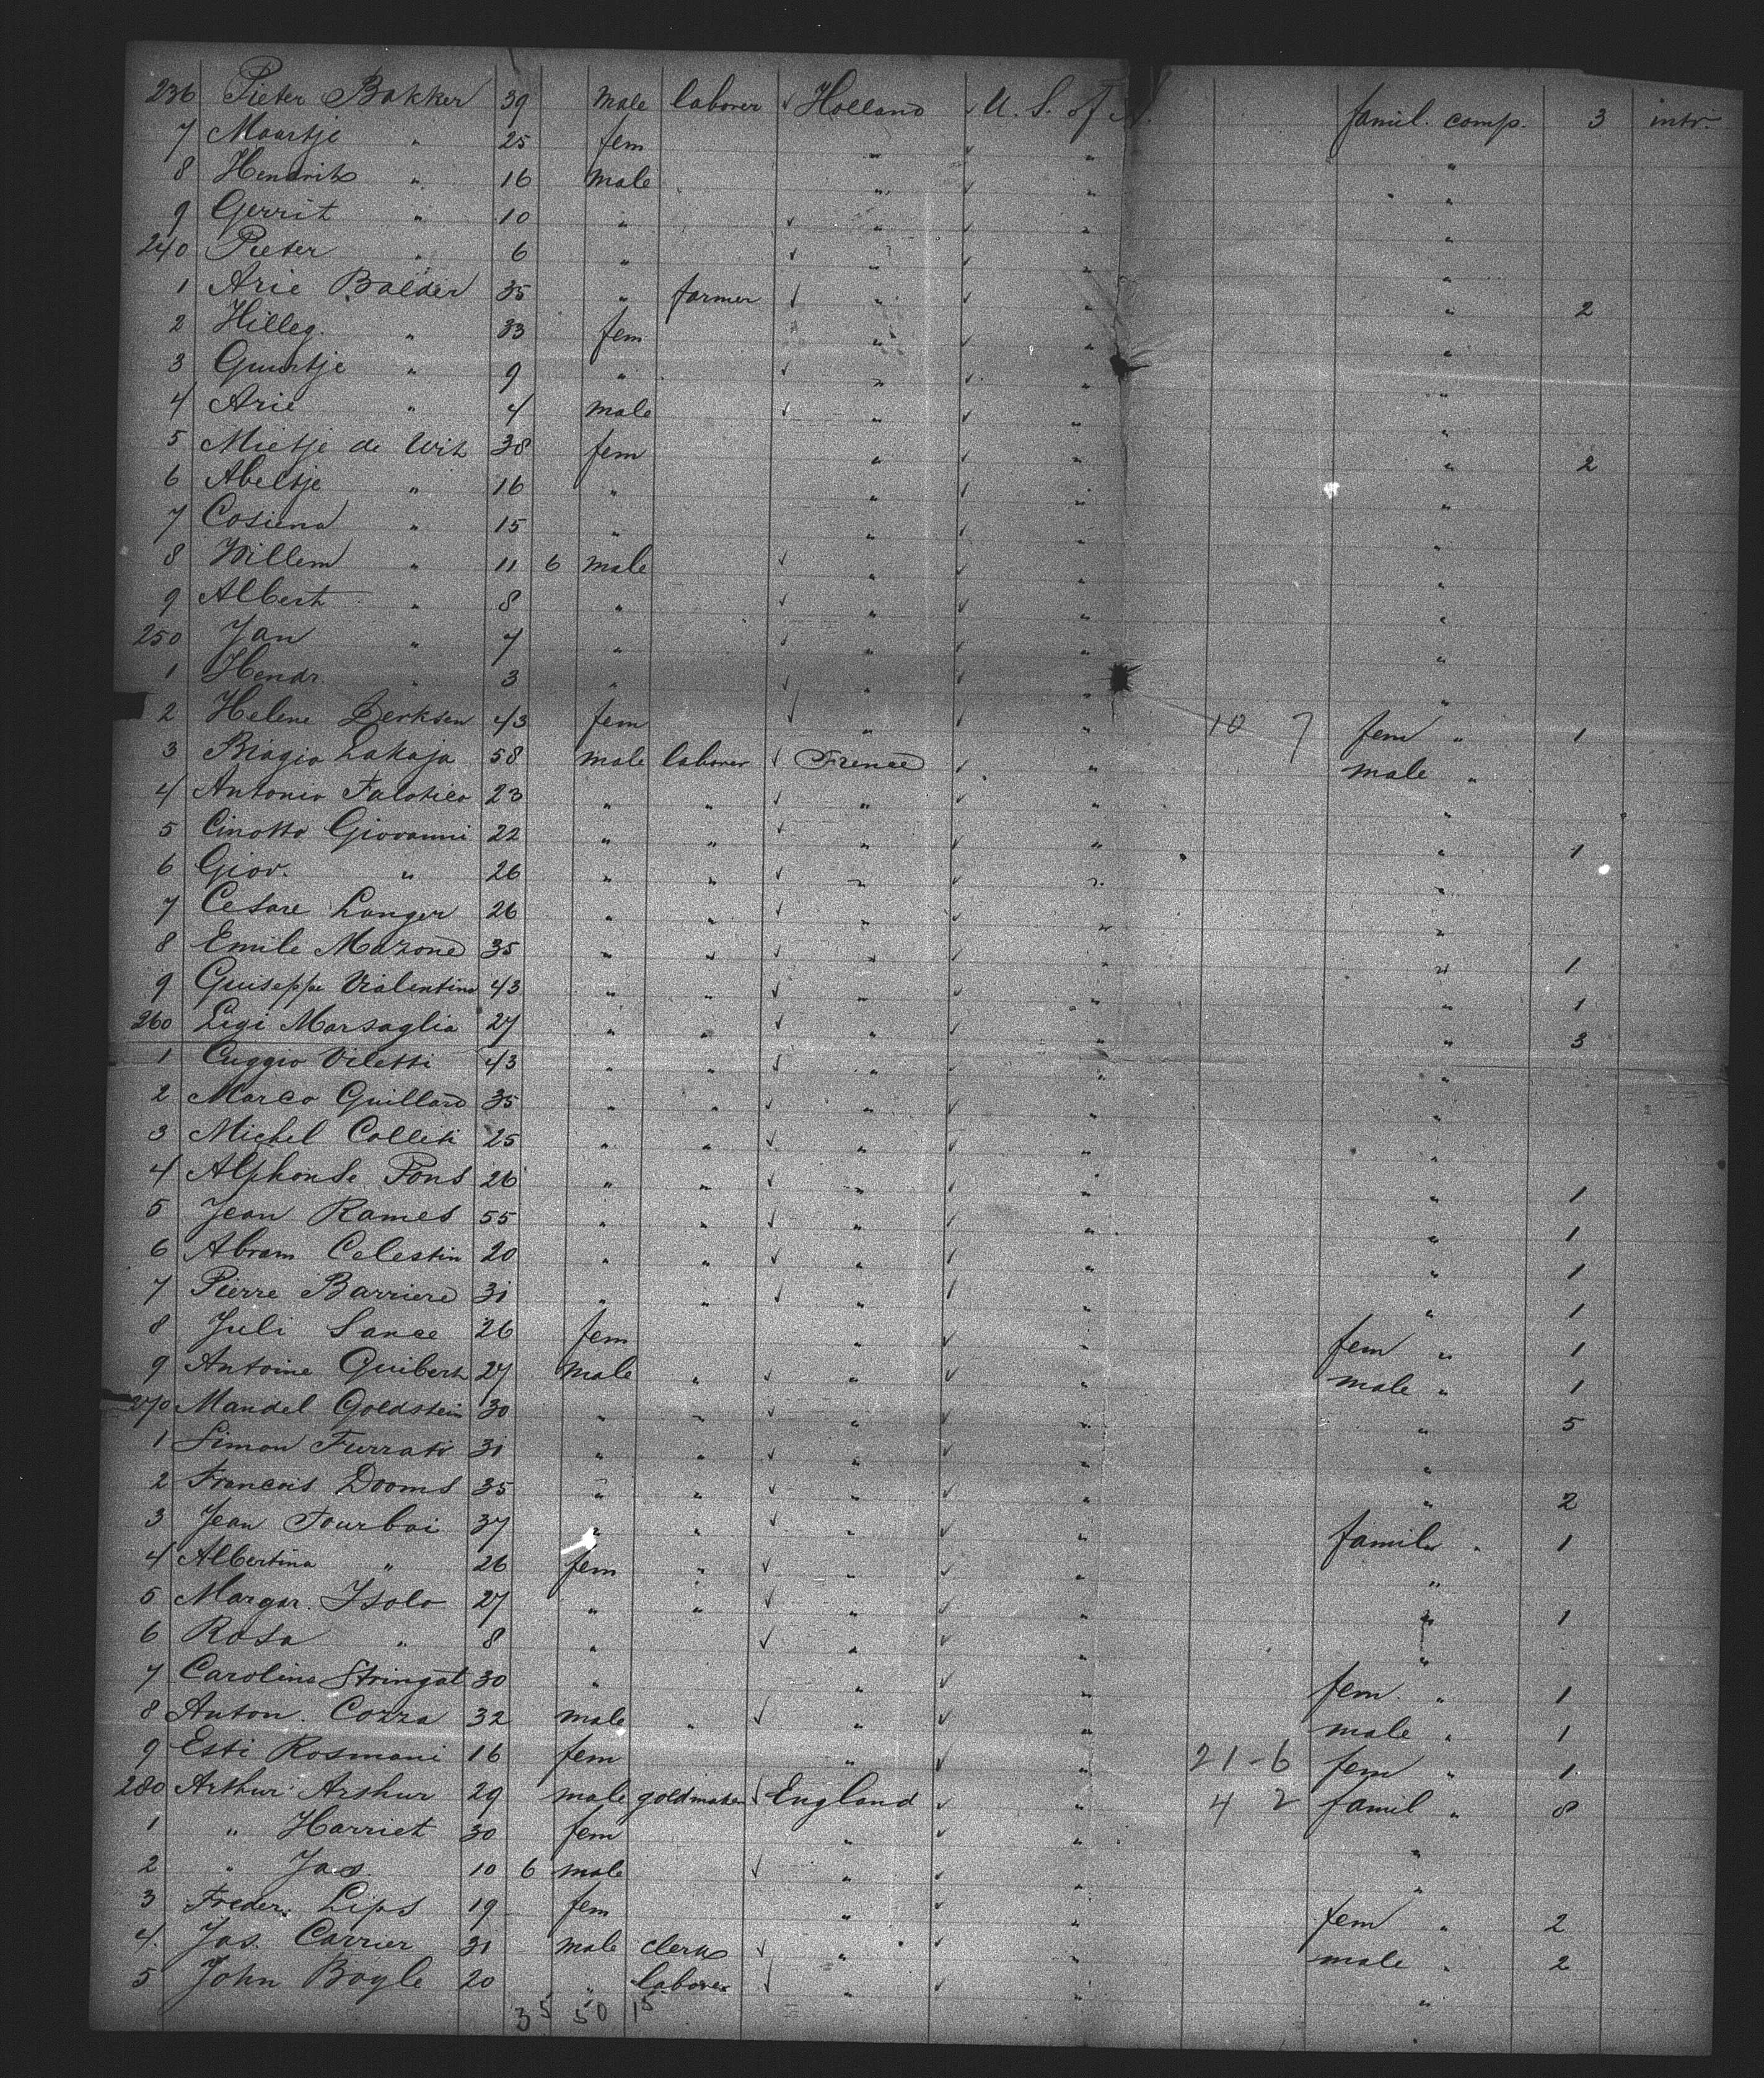 236 Pieter Bakker 39 male laborer ✓ Holland ✓ U. S. of A. famil. comp. 3 intr.
7 Maartje " 25 fem " ✓ " "
8 Hendrik " 16 male " ✓ " "
9 Gerrit " 10 " ✓ " ✓ " "
240 Pieter " 6 " ✓ " ✓ " "
1 Arie Balder 35 " farmer ✓ " ✓ " " 2
2 Hilleg. " 33 fem " ✓ " "
3 Guurtje " 9 " ✓ " ✓ " "
4 Arie " 4 male ✓ " ✓ " "
5 Mietje de Wit 38 fem " ✓ " " 2
6 Abeltje " 16 " " ✓ " "
7 Cosiena " 15 " " ✓ " "
8 Willem " 11 6 male ✓ " ✓ " "
9 Albert " 8 " ✓ " ✓ " "
250 Jan " 7 " ✓ " ✓ " "
1 Hendr. " 3 " ✓ " ✓ " "
2 Helene Derksen 43 fem ✓ " ✓ " 10 7 fem " 1
3 Biagio Lakaja 58 male laborer ✓ France ✓ " male "
4 Antonio Falotico 23 " " ✓ " ✓ " "
5 Cinotto Giovanni 22 " " ✓ " ✓ " " 1
6 Giov. " 26 " " ✓ " ✓ " "
7 Cesare Langer 26 " " ✓ " ✓ " "
8 Emile Mazone 35 " " ✓ " ✓ " " 1
9 Guiseppe Violentino 43 " " ✓ " ✓ " " 1
260 Ligi Marsaglia 27 " " ✓ " ✓ " " 3
1 Cuggio Viletti 43 " " ✓ " ✓ " "
2 Marco Guillard 35 " " ✓ " ✓ " "
3 Michel Colleti 25 " " ✓ " ✓ " "
4 Alphonse Pons 26 " " ✓ " ✓ " " 1
5 Jean Rames 55 " " ✓ " ✓ " " 1
6 Abram Celestin 20 " " ✓ " ✓ " " 1
7 Pierre Barriere 31 " " ✓ " ✓ " " 1
8 Juli Sance 26 fem " ✓ " fem " 1
9 Antoine Guibert 27 male " ✓ " ✓ " male " 1
270 Mandel Goldstein 30 " " ✓ " ✓ " " 5
1 Simon Furrati 31 " " ✓ " ✓ " "
2 Francois Dooms 35 " " ✓ " ✓ " " 2
3 Jean Tourboi 37 " " ✓ " ✓ " famil " 1
4 Albertina " 26 fem " ✓ " ✓ " "
5 Margar. Isolo 27 " " ✓ " ✓ " " 1
6 Rosa " 8 " ✓ " ✓ " "
7 Carolina Stringat 30 " " ✓ " fem. " 1
8 Anton. Cozza 32 male " ✓ " ✓ " male " 1
9 Esti Rosmani 16 fem " ✓ " 21-6 fem " 1
280 Arthur Arthur 29 male goldmaker ✓ England ✓ " 4 2 famil " 8
1 " Harriet 30 fem " ✓ " "
2 " Jas. 10 6 male ✓ " ✓ " "
3 Freder. Lips 19 fem " ✓ " fem " 2
4. Jas. Carrier 31 male clerk ✓ " ✓ " male " 2
5 John Bogle 20 " laborer ✓ " ✓ " "
35 50 15